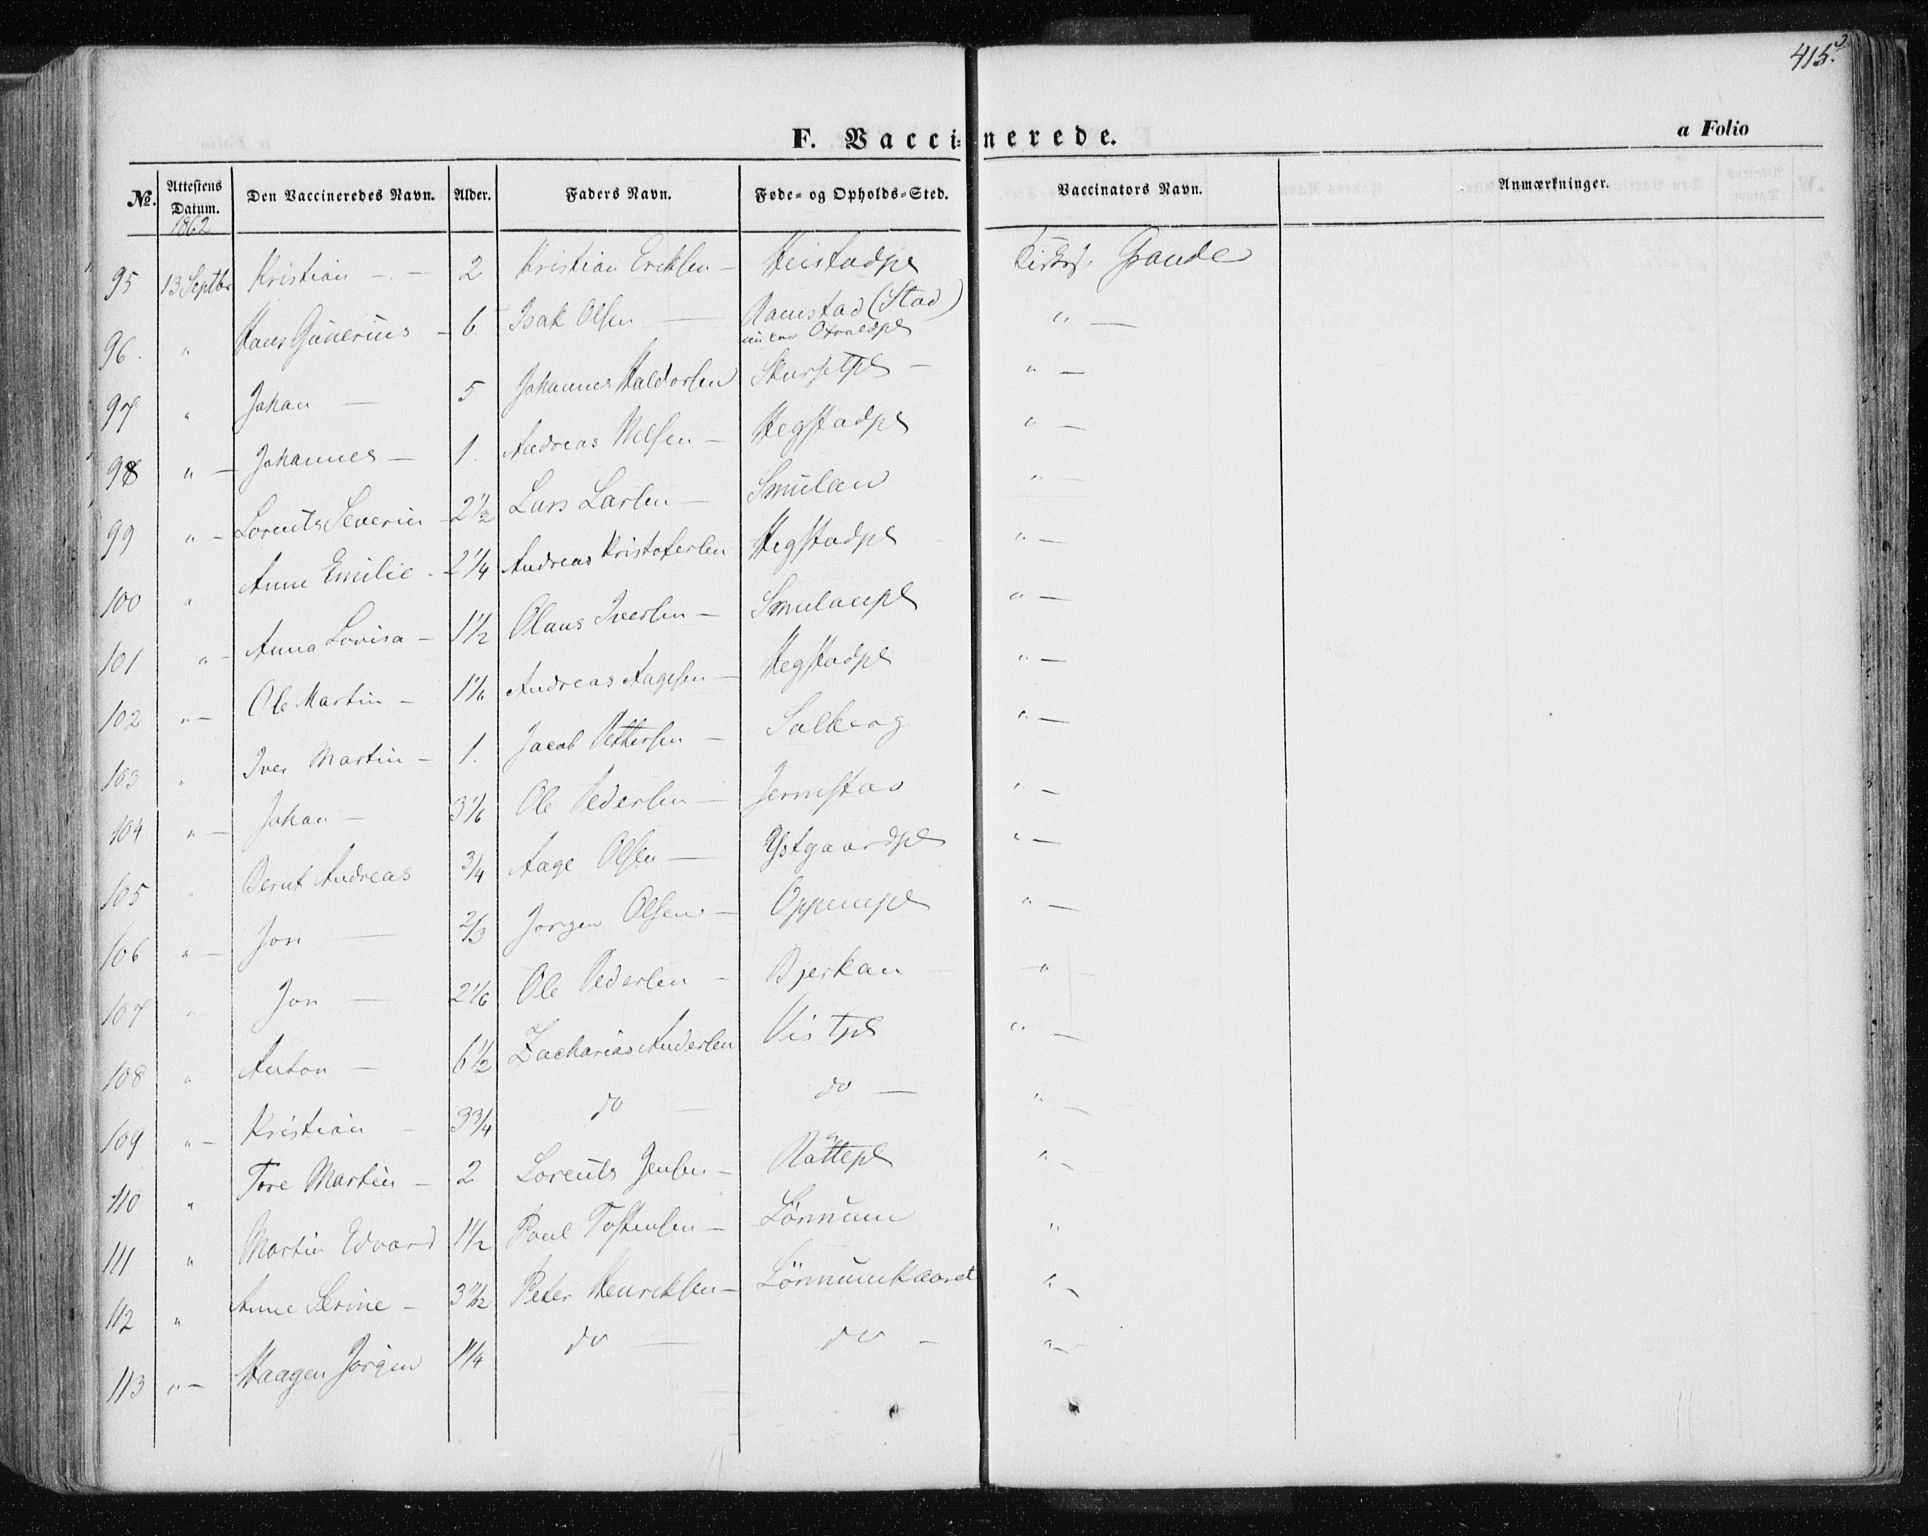 415.
F. Vaccinerede.
a Folio
No. Attestens Datum. Den Vaccineredes Navn. Alder. Faders Navn. Føde- og Opholds-Sted. Vaccinators Navn. Anmærkninger.
1862
95 13 Septbr Kristian - 2 Kristian Eriksen - Heistadpl Grande
96. " Hans Gunerius - 6 Isak Olsen - Ramstad (Stad) " -
97 " Johan - 5 Johannes Haldorsen -  " -
98 " - Johannes - 1. Andreas Nilsen - Hegstadpl " -
99 " - Lorents Severin - 2 1/2 Lars Larsen - Smulan " -
100 " Anne Emilie - 2 1/4 Andreas Kristofersen Hegstadpl " -
101 " - Anna Lovisa - 1 1/2 Olaus Iversen - Smulanpl " -
102 " - Ole Martin - 1 1/6 Andreas Aagesen - Hegstadpl " -
103 " Iver Martin - 1. Jacob Pettersen - Salberg " -
104 " - Johan - 3 1/6 Ole Pedersen - Jermstad " -
105 " Bernt Andreas 3/4 Aage Olsen - Ystgaardpl " -
106 " - Jon - 2/3 Jørgen Olsen - Oppempl " -
107 " Jon - 2 1/6 Ole Pedersen - Bjerkan " -
108 " Anton - 6 1/2 Zacharias Andersen Vistpl " -
109 " - Kristian - 3 3/4 do - do - " -
110 " Tore Martin - 2 Lorents Jensen - " -
111 " Martin Edvard 1 1/2 Paul Tostensen - Lønnum "
112 " Anne Serine - 3 1/2 Peter Henriksen - " -
113 " - Haagen Jørgen 1 1/4 do - do - " -